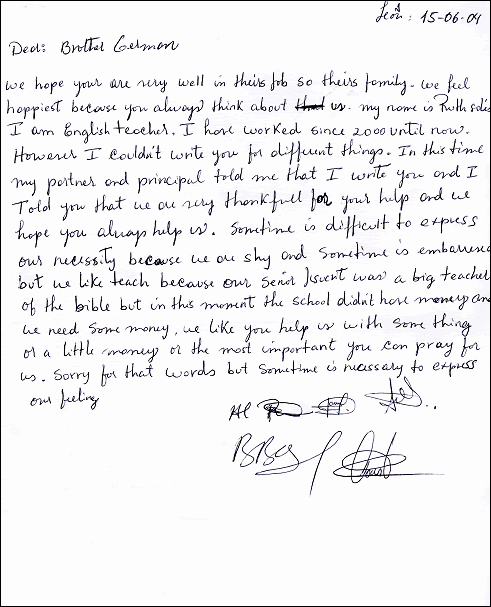 León: 15-06-04
Dear: Brother German
we hope your are very well in theirs job so theirs family. we feel
happiest because you always think about that us. my name is Ruth solís
I am English teacher. I have worked since 2000 until now.
However I couldn't write you for different things. In this time
my partner and principal told me that I write you and I
Told you that we are very thankfull for your help and we
hope you always help us. Sometime is difficult to express
our necessity because we are shy and sometime is embarrenc
but we like teach because our Señor Jesucrist was a big teacher
of the bible but in this moment the school didn't have money and
we need some money, we like you help us with some thing
or a little money or the most important you can pray for
us. Sorry for that words but sometime is necessary to express
our feeling